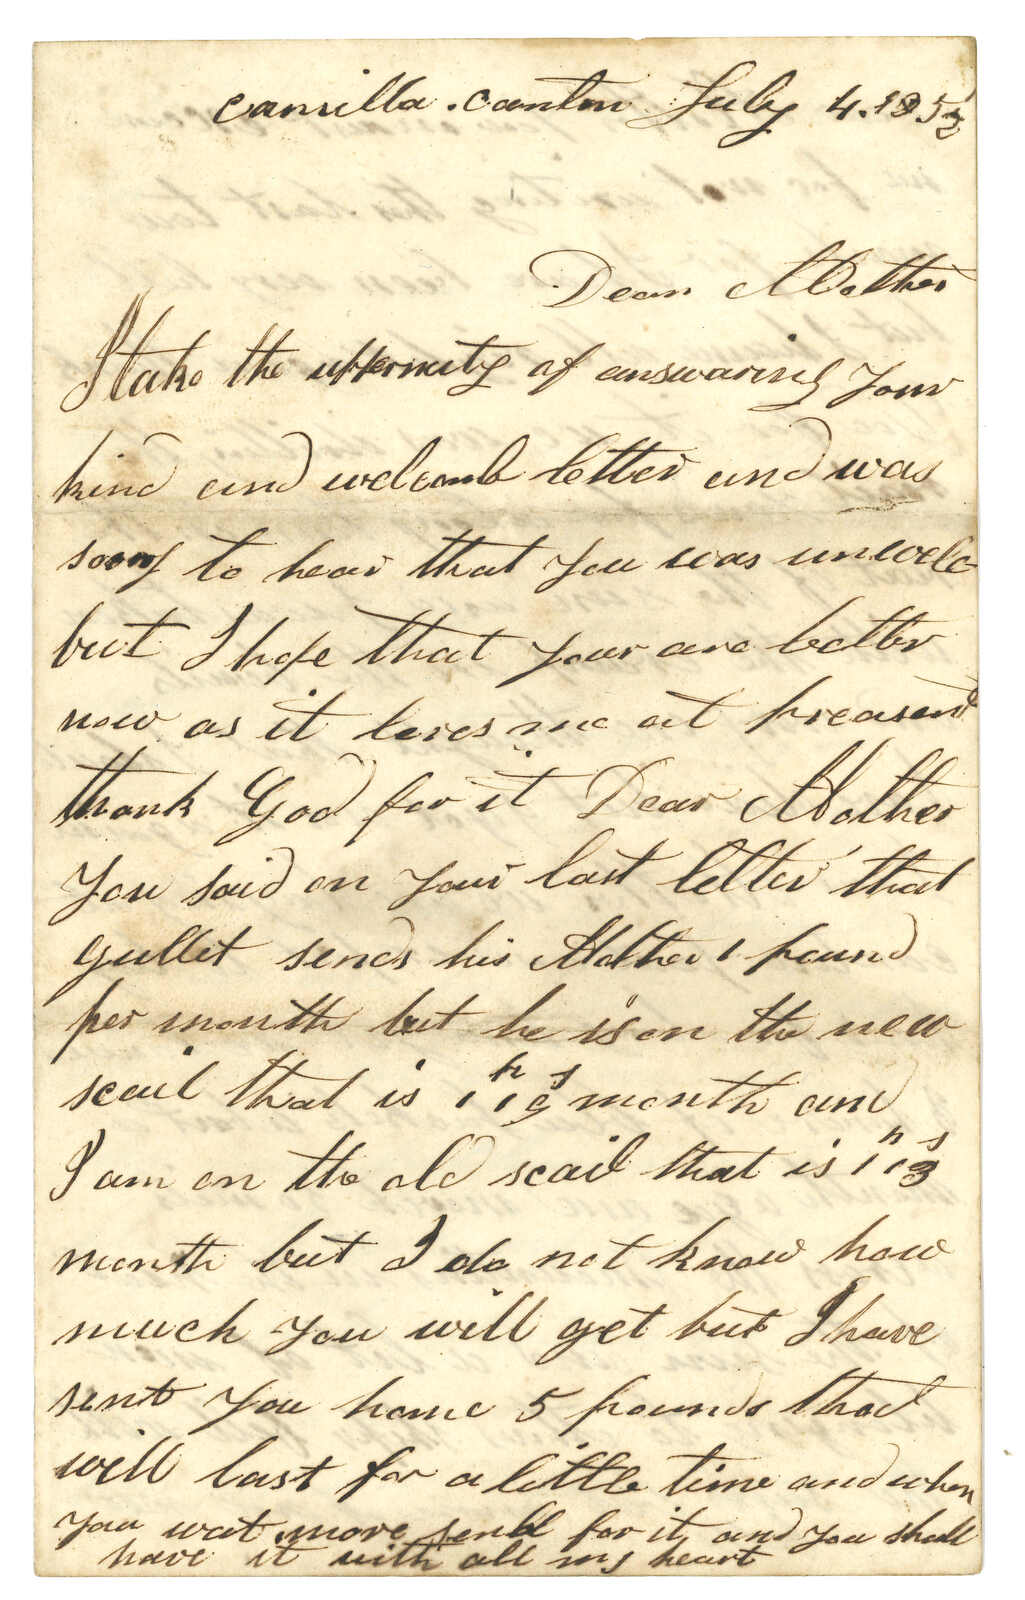 camilla . canton July 4. 185
Dear Mother
I take the uppornuty of answaring your
kind and welcomb letter and was
soory to hear that you was unwele
but I hope that your are better
now as it leves me at preasent
thank God for it Dear Mother
you said on your last letter that
gullet sends his Mother 1 pound
per month but he is on the new
scail that is month and
I am on the old scail that is
month but I do not know how
much you will get but I have
sent you home 5 pounds that
will last for a little time and when
you wat more send for it and you shall
have it with all my heart